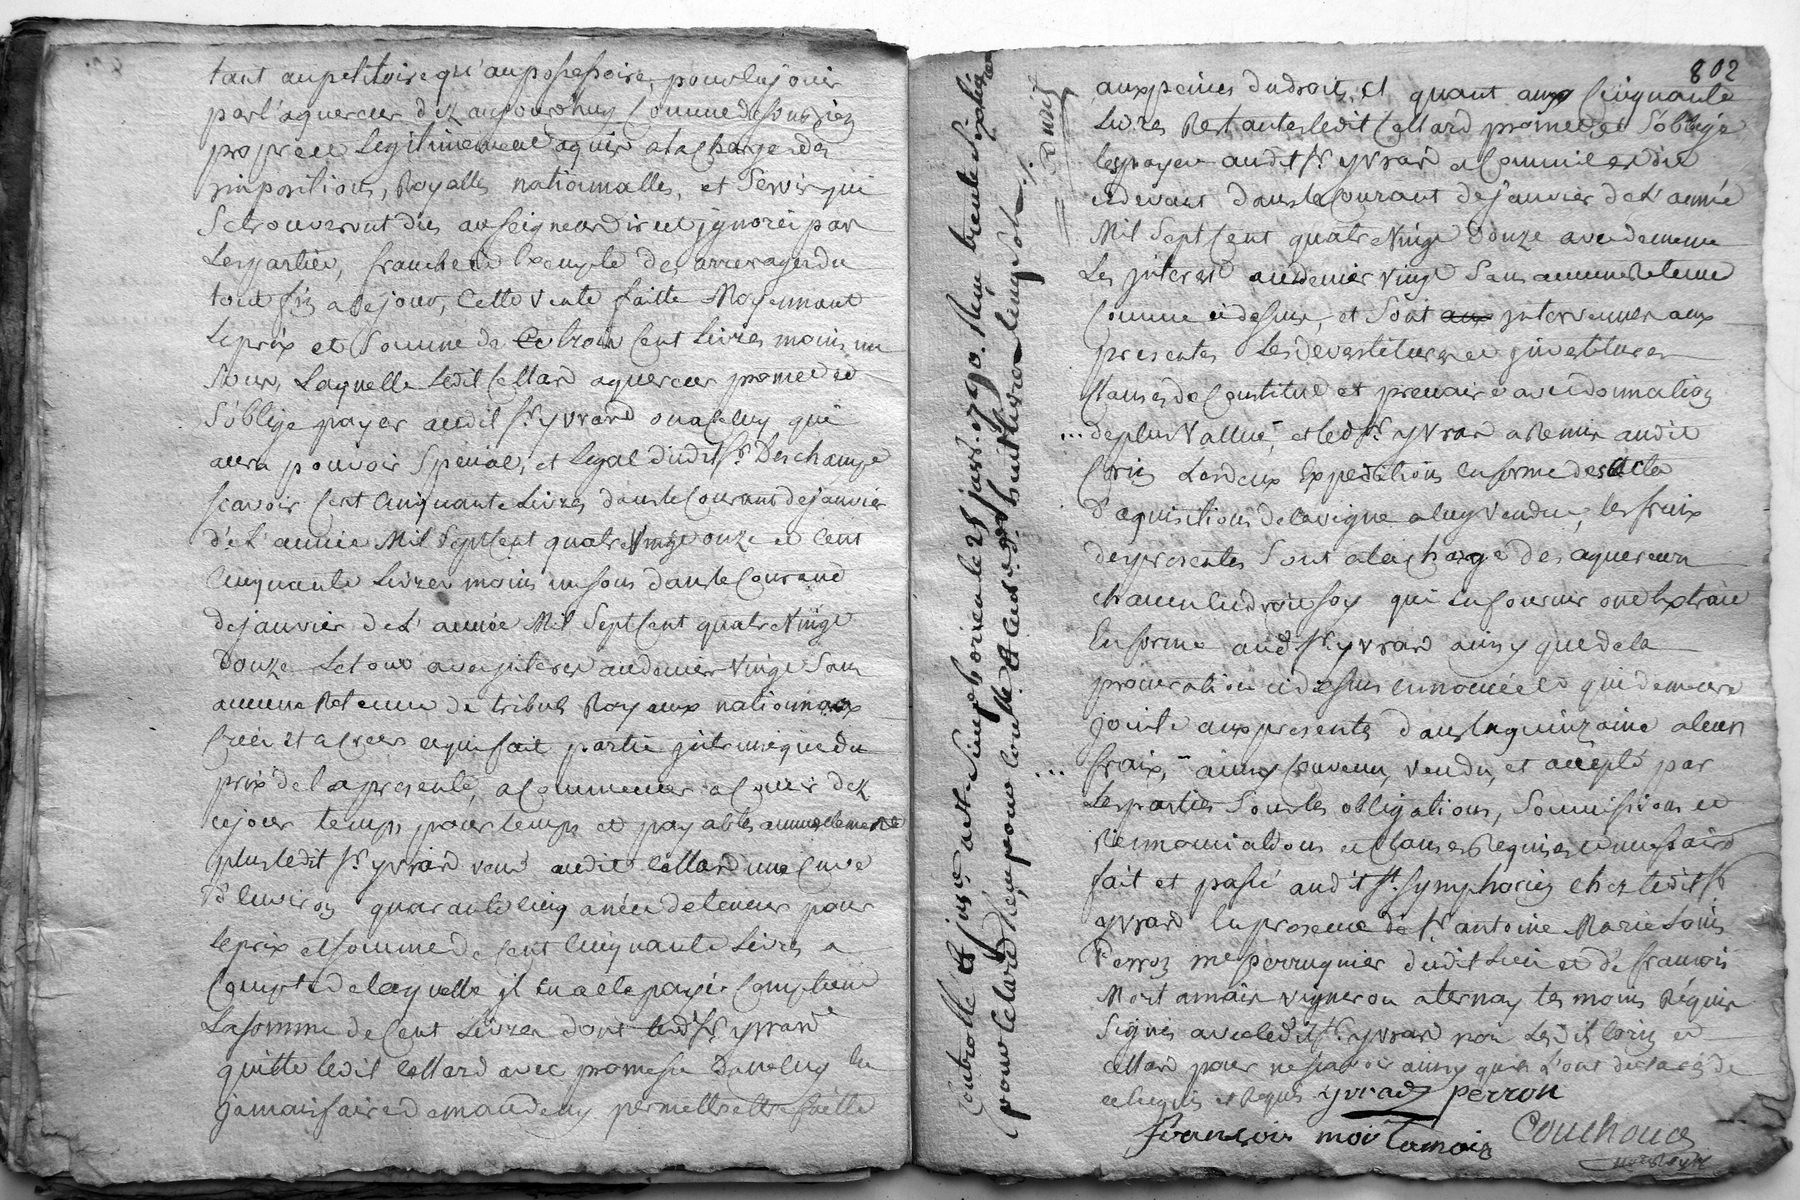 tant au petitoire qu'au possessoire, pour en jouir
par l'aquereur dez aujourdhuy Comme de son bien
propre et legitimement aquis a la charge des
impositions, Royalles nationnalles, et Servis qui
Se trouveront dûs au seigneur direct ignoré par
Les parties, franche et Exempte des arrerages du
tout jusqu'a ce jour, Cette vente faitte Moyennant
Le prix et Somme de trois Cent Livres moins un
Sous, Laquelle Ledit Collard aquereur promet et
S'oblige payer audit Sr. yvrard ou a celuy qui
aura pouvoir Special, et Legal dudit Sr. Deschamps
scavoir Cent Cinquante Livres dans le Courant de janvier
de L'année Mil Sept Cent quatre Vingt onze et Cent
Cinquante Livres moins un sous dans le Courant
de janvier de L'année Mil Sept Cent quatre Vingt
Douze Le tout avec interet au denier vingt Sans
aucune Retenue de tributs Royaux nationnaux
Créés et a Créer ce qui fait partie intrinseque du
prix de la presente, a Commencer a Courir dez
ce jour temps pour temps et payables annuellement
plus ledit Sr. yvrard vend audit Collard une Cuve
d'Environ quarante cinq anées de teneur pour
Le prix et somme de Cent Cinquante Livres a
Compte de laquelle il En a eté payé Comptant
La somme de Cent Livres dont ledt. Sr. yvrard
quitte ledit Collard avec promesse de ne luy En
jamais faire demande ny permettre Etre faitte
802
aux peines du droit, et quant aux Cinquante
Livres Restantes ledit Collard promet et S'oblige
les payer audit Sr. yvrard
cy devant dans le Courant de janvier de L'année
Mil Sept Cent quatre Vingt Douze avec de meme
Les interet au denier vingt Sans aucune Retenue
Comme ci dessus, et Sont intervenues aux
presentes Les devestitures et investitures
Clauses de Constitut et precaire avec donnation
de plus Vallue, et ledt. Sr. yvrard a Remis audit
Les deux Expeditions En forme des actes
d'aquisitions de la vigne a luy vendue, les fraix
des presentes Sont a la charge des aquereurs
chacun En droit soy qui En fourniront Extrait
En forme audt. Sr. yvrard ainsy que de la
procuration ci dessus Ennoncée et qui demeure
jointe aux presentes dans la quinzaine a leurs
fraix, ainsy Convenu, vendu, et accepté par
Les parties Sous les obligations, Soumissions et
Renonciations et Clauses Requises et necessaires
fait et passé audit St. Symphorien chez ledit Sr.
yvrard En presence de Sr. antoine Marie Louis
Perron me. perruquier dudit Lieu et de francois
Mortamais vigneron a ternay temoins Requis
Signés avec ledit Sr. yvrard non Lesdits et
Collard pour ne scavoir ainsy qu'ils L'ont declaré de
ce Enquis et Requis yvrard perron
francois mortamais Couchoud
Controllé et insé. a St. Simphorien le 25 janv. 1790. Reçu trente six livres